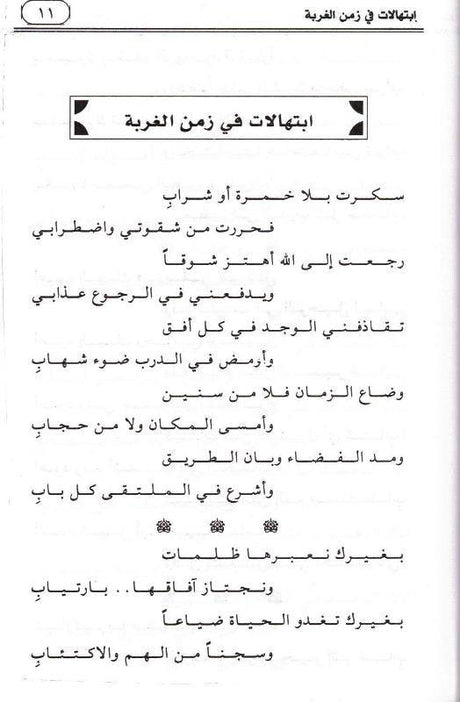 إبتهالات في زمن الغربة
١١
ابتهالات في زمن الغربة
سكرت بلا خمرة أو شرابِ
فحررت من شقوتي واضطرابي
رجعت إلى الله أهتز شوقاً
ويدفعني في الرجوع عذابي
تقاذفني الوجد في كل أفق
وأرمض في الدرب ضوء شهابِ
وضاع الزمان فلا من سنين
وأمسى المكان ولا من حجابِ
ومد الفضاء وبان الطريق
وأشرع في الملتقى كل بابِ
بغيرك نعبرها ظلمات
ونجتاز آفاقها.. بارتيابِ
بغيرك تغدو الحياة ضياعاً
وسجناً من الهم والاكتئابِ